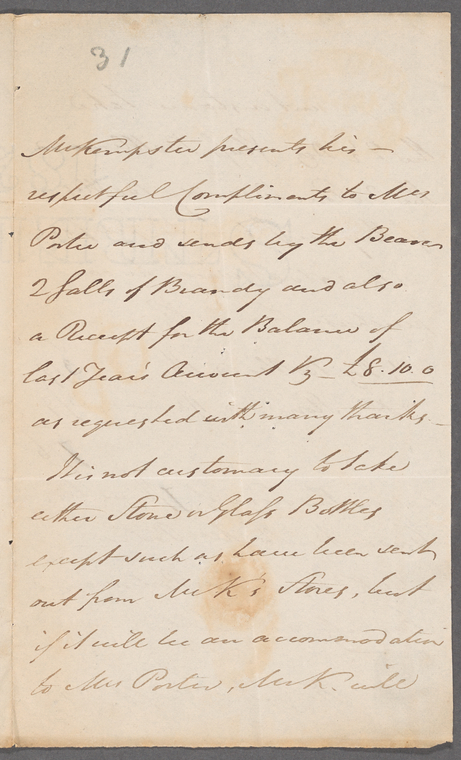 31
Mr Kempster presents his —
respectful Compliments to Mrs
Porter and sends by the Bearer
2 Galls of Brandy and also
a Receipt for the Balance of
last Years Account Vz — £8.10.0
as requested with many thanks. —
It is not customary to take
either Stone or Glass Bottles
except such as have been sent
out from Mr K's Stores, but
if it will be an accommodation
to Mrs Porter, Mr K. will